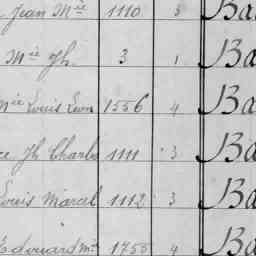 Jean Mie 1110 3 Ba
Mie Jh. 3 1 Ba
Mie Louis Léon 1556 4 Ba
Jh Charles 1111 3 Ba
Louis Marcel 1112 3 Ba
Edouard Mie 1755 4 Ba